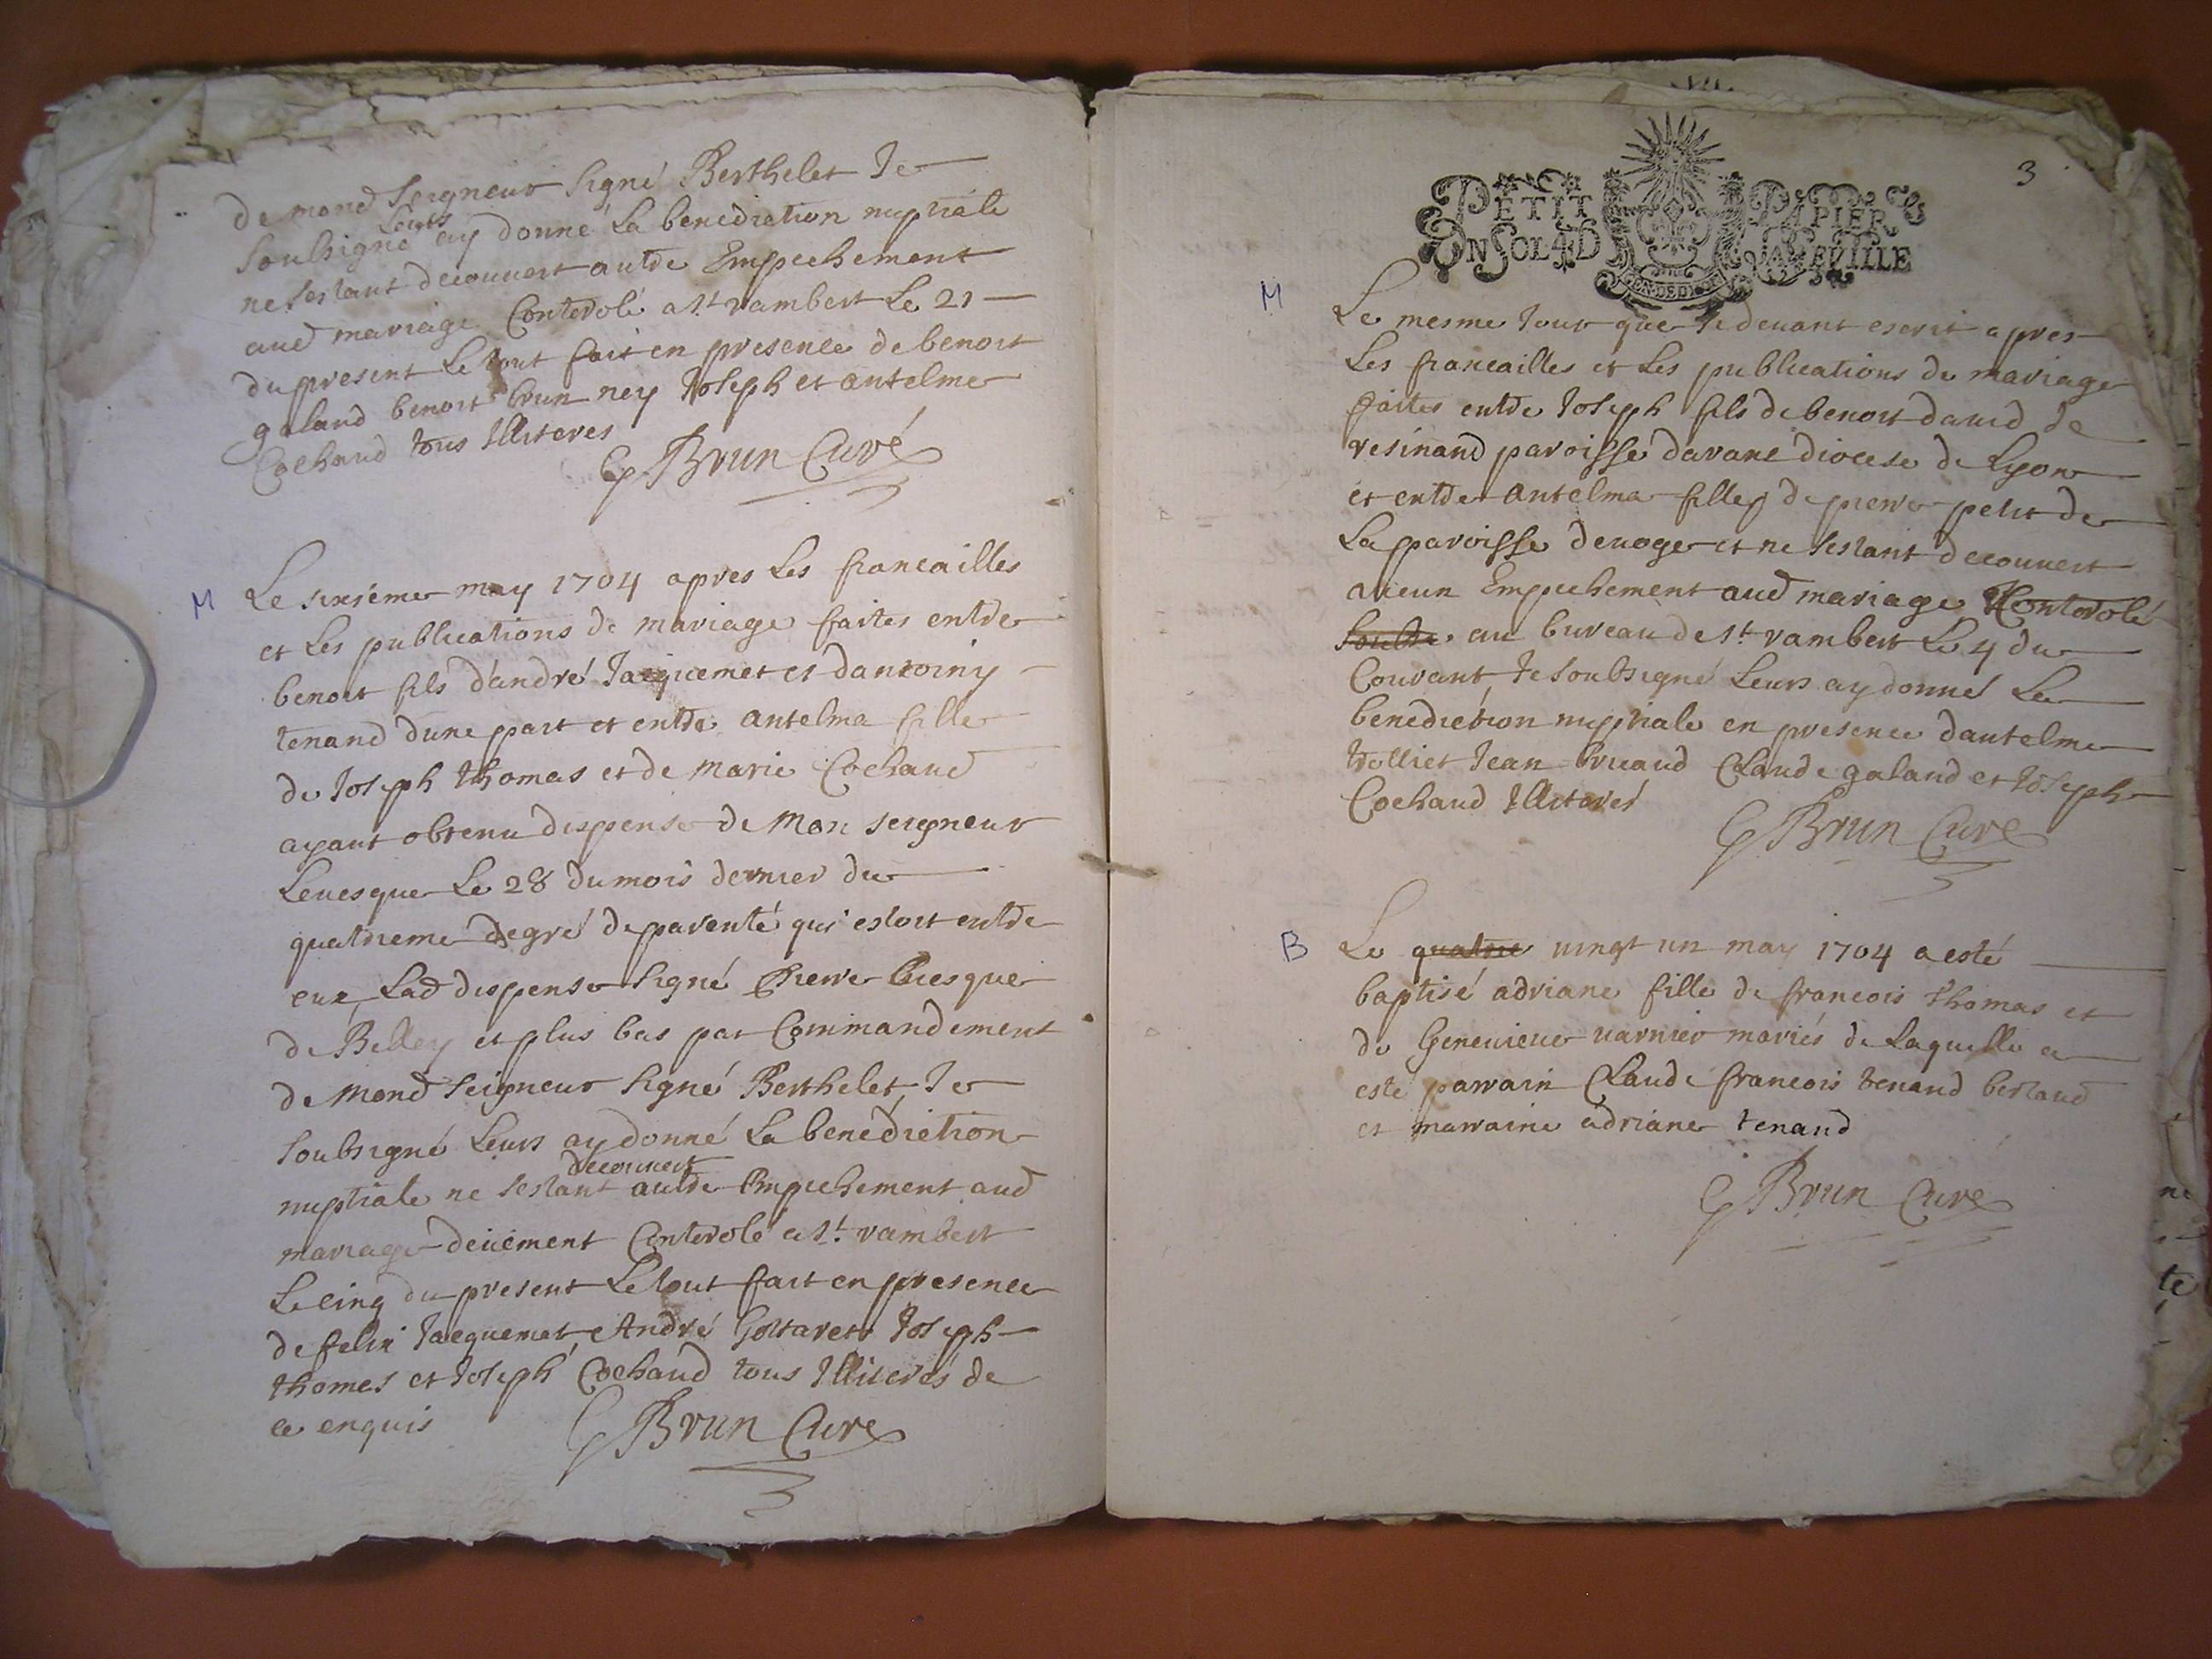 de mond Seigneur Signé Berthelet Je
leurs
Soubsigné ay donné La benediction nuptiale
ne sestant decouuert autre Empechement
aud mariage Controlé a St rambert Le 21
du present Le tout fait en presence de benoit
galand benoit brun ney Joseph et antelme
Cochand tous Illiteres
G Brun Curé
M
Le sixiéme may 1704 apres Les fiancailles
et Les publications de mariage faites entre
benoit fils d'andré Jacquemet et dantoiny
tenand dune part et entre antelma fille
de Joseph thomas et de marie Cochand
ayant obtenu dispense de Mon seigneur
Leuesque Le 28 du mois dernier du
quatrieme degré de parenté qui estoit entre
eux, Lad dispense signé Pierre Euesque
de Belley et plus bas par Commandement
de mond seigneur signé Berthelet, Je
soubsigné Leurs ay donné La benediction
decouuert
nuptiale ne sestant autre Empechement aud
mariage deüement Controlé a St. rambert
Le cinq du present Le tout fait en presence
de felix Jacquemet, André Gottaret Joseph
thomas et Joseph Cochand tous Illiterés de
ce enquis
G Brun Curé
3
PETIT PAPIER
UN SOL 4 D LA FEUILLE
GEN. DE DIJON
M
Le mesme Jour que cy deuant escrit apres
Les fiancailles et Les publications de mariage
faites entre Joseph fils de benoit dauid de
resinand paroisse darane diocese de Lyon
et entre antelma fille de pierre petit de
La paroisse denoge et ne sestant decouuert
aucun Empechement aud mariage Controlé
au bureau de St. rambert Le 4 du
Courant Je soubsigné Leurs ay donné La
benediction nuptiale en presence dantelme
trolliet Jean brucand Claude galand et Joseph
Cochand Illiterés
G Brun Curé
B
Le quatre vingt un may 1704 a esté
baptisé adriane fille de francois thomas et
de Geneuieue varnier mariés de Laquelle a
esté parrain Claude francois tenand bertand
et marraine adriane tenand
G Brun Curé
ne
te